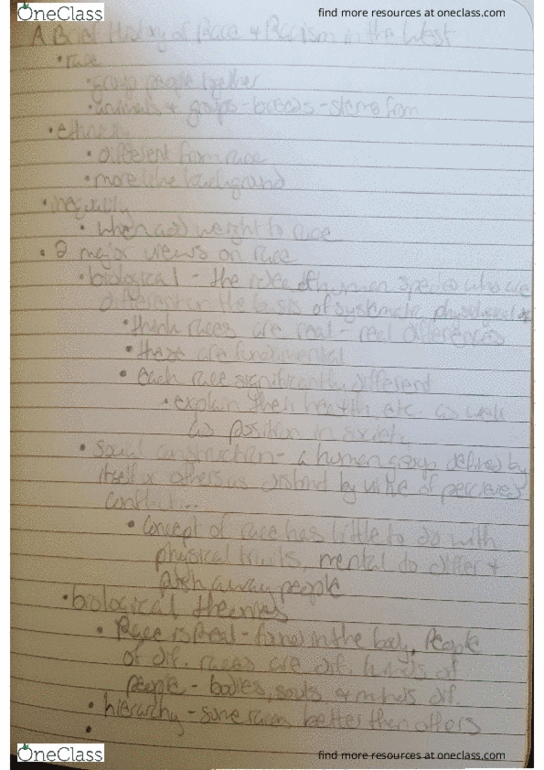 OneClass
find more resources at oneclass.com
A Brief History of Race & Racism in the West
• race
• group people together
• animals & groups - breeds - stems from
• ethnicity
• different from race
• more like background
• inequality
• when add weight to race
• 2 major views on race
• biological - the idea of human species who are
different on the basis of systematic, physical
• think races are real - real differences
• these are fundamental
• each race significantly different
• explain their health etc. as well
as position in society
• social construction - a human group defined by
itself or others as distinct by virtue of perceived
• concept of race has little to do with
physical traits, mental do differ &
people
• biological theories
• Race is Real - found in the body, People
of dif. races are dif. kinds of
people - bodies, souls & minds dif.
• hierarchy - some races better then others
•
OneClass
find more resources at oneclass.com